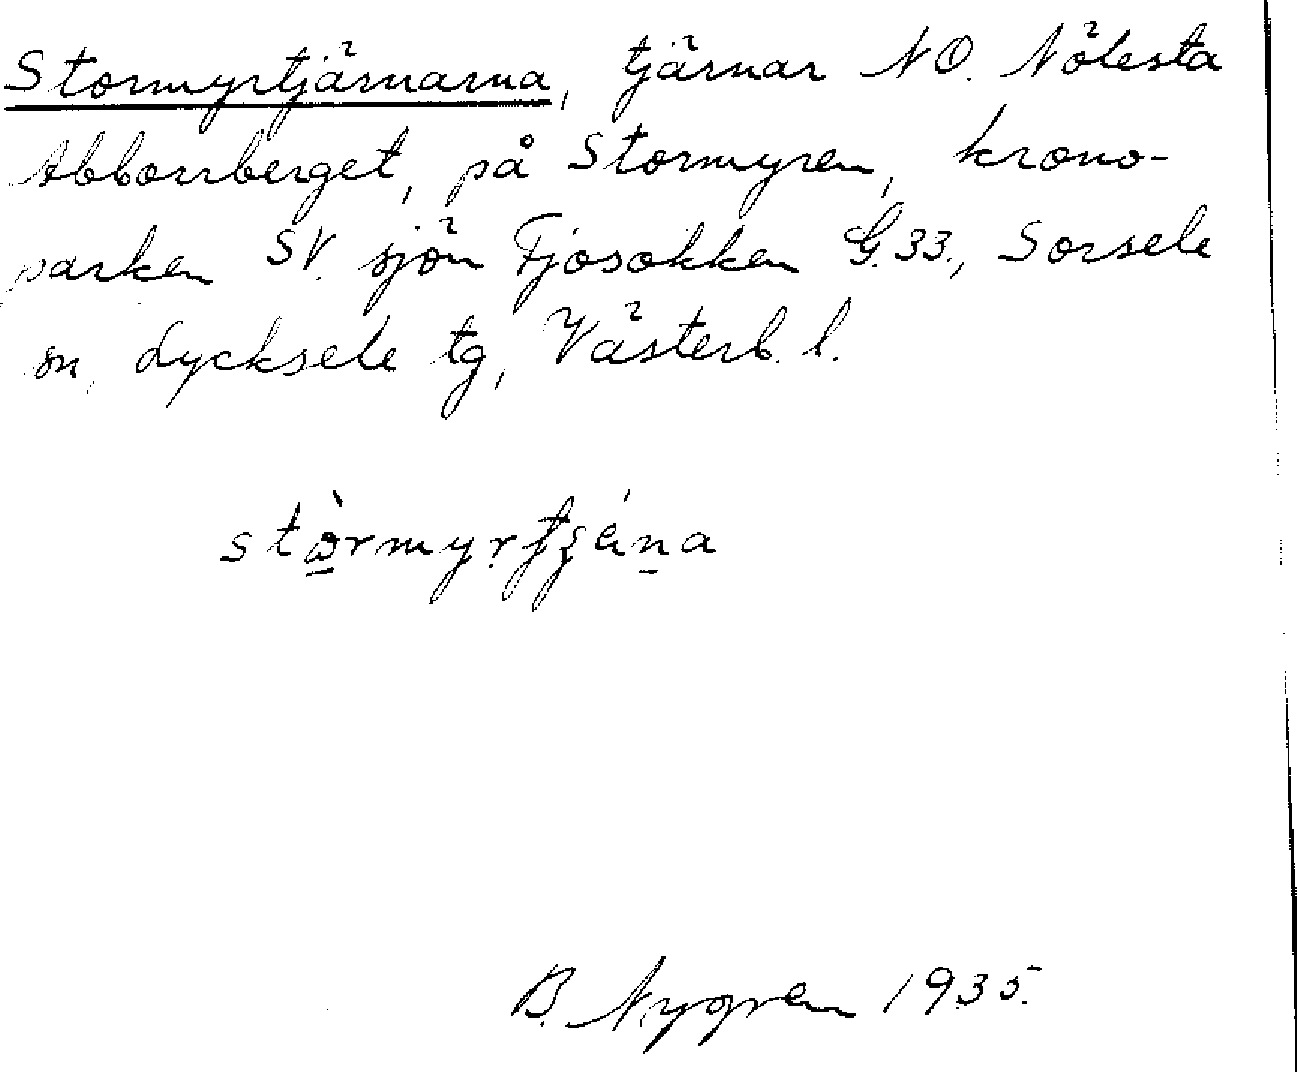 Stormyrtjärnarna, tjärnar NO. Nölesta
Abborrberget, på Stormyren, krono-
parken SV. sjön Fjosokken G.33., Sorsele
sn, Lycksele tg, Västerb. l.
B. Nygren 1935.